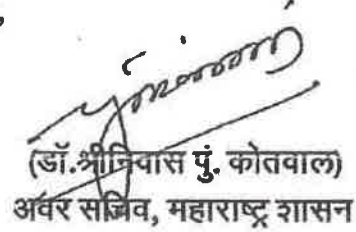 (डॉ.श्रीनिवास पुं. कोतवाल)
अवर सचिव, महाराष्ट्र शासन